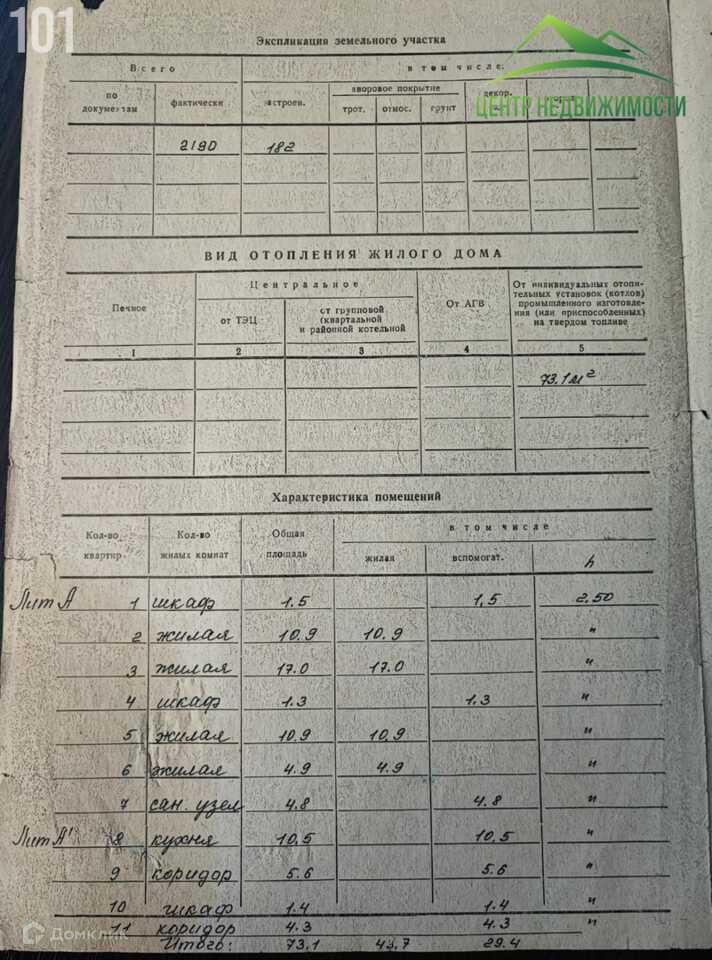 101
Экспликация земельного участка
ЦЕНТР НЕДВИЖИМОСТИ
Всего в том числе
по документам фактически застроен. дворовое покрытие декор.
трот. отмос. грунт
2190 182
ВИД ОТОПЛЕНИЯ ЖИЛОГО ДОМА
Печное Центральное От АГВ От индивидуальных отопительных установок (котлов) промышленного изготовления (или приспособленных) на твердом топливе
от ТЭЦ от групповой (квартальной и районной котельной
1 2 3 4 5
73.1 м²
Характеристика помещений
Кол-во квартир Кол-во жилых комнат Общая площадь в том числе
жилая вспомогат. h
Лит А 1 шкаф 1.5 1,5 2.50
2 жилая 10.9 10.9 "
3 жилая 17.0 17.0 "
4 шкаф 1.3 1.3 "
5 жилая 10.9 10.9 "
6 жилая 4.9 4.9 "
7 сан. узел 4.8 4.8 "
Лит А' 8 кухня 10,5 10,5 "
9 коридор 5.6 5.6 "
10 шкаф 1.4 1.4 "
11 коридор 4.3 4.3 "
Итого: 73,1 43,7 29.4
Домклик